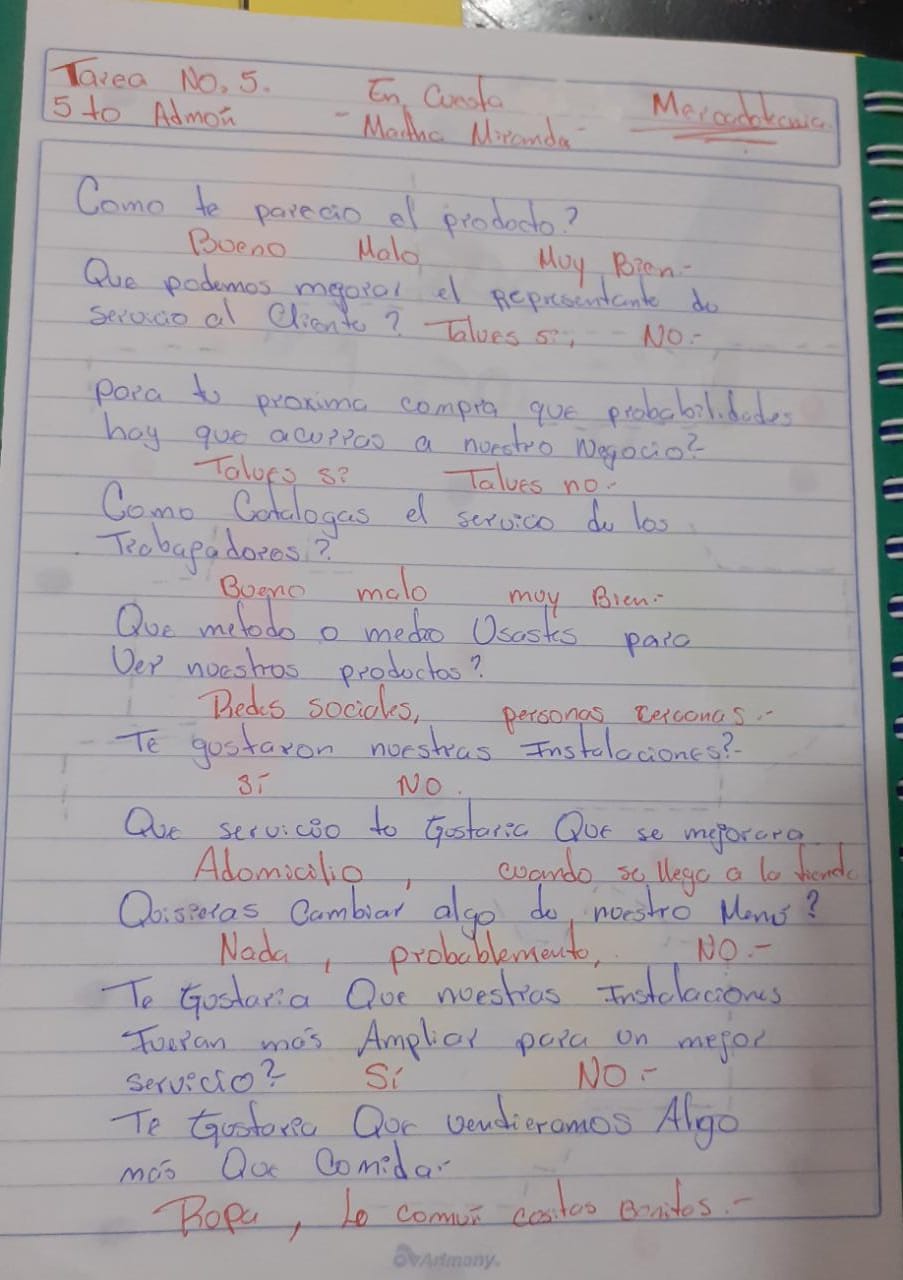 Tarea No. 5. En Cuesta Mercadotecnia
5to Admoń - Martha Miranda -
Como te parecio el prodocto?
Bueno Malo Muy Bien.-
Que podemos mejorar el Representante de
servicio al Cliente? Talves si, NO.-
para tu proxima compra que probabilidades
hay que acurras a nuestro Negocio?-
Talves si Talves no.-
Como Catalogas el servico de los
Trabajadores?
Bueno malo muy Bien.-
Que metodo o medio Usastes para
Ver nuestros productos?
Redes sociales, personas cercanas.-
Te gustaron nuestras Instalaciones?-
Si NO.
Que servicio te Gustaria Que se mejorara
Adomicilio, cuando se llega a la tienda
Quisieras Cambiar algo de nuestro Menú?
Nada, probablemente, NO.-
Te Gustaria Que nuestras Instalaciones
Fueran más Ampliar para un mejor
servicio? Sí NO.-
Te Gustaria Que vendieramos Algo
más Que Comida.-
Ropa, Lo común cositas Bonitas.-
Artmony.